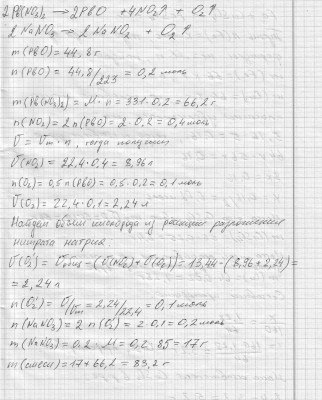 2 Pb(NO₃)₂ → 2PbO + 4NO₂↑ + O₂↑
2 NaNO₃ → 2 NaNO₂ + O₂↑
m(PbO) = 44,8 г
n(PbO) = 44,8/223 = 0,2 моль
m(Pb(NO₃)₂) = M · n = 331 · 0,2 = 66,2 г
n(NO₂) = 2 n(PbO) = 2 · 0,2 = 0,4 моль
V = Vm · n, тогда получим
V(NO₂) = 22,4 · 0,4 = 8,96 л
n(O₂) = 0,5 n(PbO) = 0,5 · 0,2 = 0,1 моль
V(O₂) = 22,4 · 0,1 = 2,24 л
Найдем объем кислорода из реакции разложения
нитрата натрия
V(O₂') = Vобщ - (V(NO₂) + V(O₂)) = 13,44 - (8,96 + 2,24) =
= 2,24 л
n(O₂') = V/Vm = 2,24/22,4 = 0,1 моль
n(NaNO₃) = 2 n(O₂') = 2 · 0,1 = 0,2 моль
m(NaNO₃) = 0,2 · M = 0,2 · 85 = 17 г
m(смеси) = 17 + 66,2 = 83,2 г